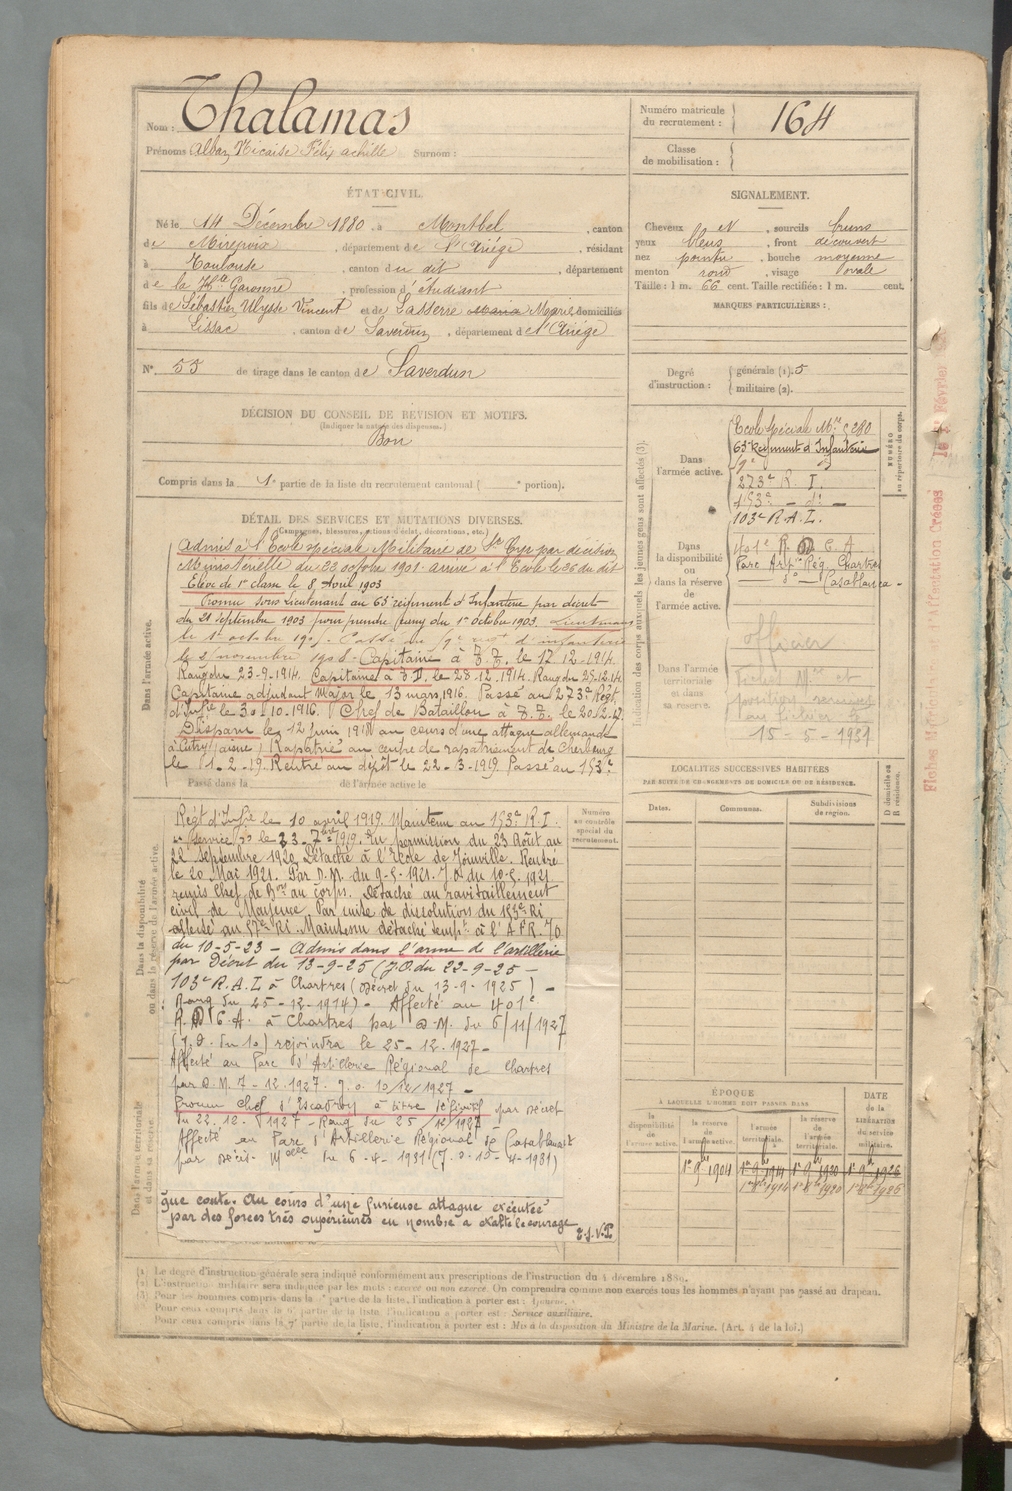 Nom : Thalamas
Prénoms Alban Nicaise Félix Achille Surnom :
Numéro matricule du recrutement : 164
Classe de mobilisation :
ÉTAT CIVIL.
Né le 14 Décembre 1880, à Montbel, canton
de Mirepoix, département de l'Ariége, résidant
à Toulouse, canton du dit, département
de la Hte Garonne, profession d'étudiant
fils de Sébastien Ulysse Vincent et de Lasserre Maria Marie domiciliés
à Lissac, canton de Saverdun, département de l'Ariége
N° 55 de tirage dans le canton de Saverdun
DÉCISION DU CONSEIL DE RÉVISION ET MOTIFS.
(Indiquer la nature des dispenses.)
Bon
Compris dans la 1e partie de la liste du recrutement cantonal ( e portion).
DÉTAIL DES SERVICES ET MUTATIONS DIVERSES.
(Campagnes, blessures, actions d'éclat, décorations, etc.)
Dans l'armée active.
Admis à l'Ecole spéciale Militaire de St Cyr par décision
Ministerielle du 22 octobre 1901 arrivé à l'Ecole le 26 du dit
Elève de 1re classe le 8 Avril 1903
Promu sous Lieutenant au 63e régiment d'Infanterie par décret
du 21 septembre 1903 pour prendre rang du 1er octobre 1903. Lieutenant
le 1er octobre 1905. Passé au 9e regt d'infanterie
le 2 novembre 1908. Capitaine à T.T. le 17.12.1914
Rang du 23-9-1914. Capitaine à T.D. le 28-12-1914. Rang du 25.12.14
Capitaine adjudant Major le 13 mars 1916. Passé au 273e Regt
d'Infie le 30-10-1916. Chef de Bataillon à T.T. le
Disparu le 12 Juin 1918 au cours d'une attaque allemande
à Cutry (aisne) Rapatrié au centre de rapatriement de Cherbourg
le 1-2-19. Rentré au dépôt le 22-3-1919. Passé au 153e
Passé dans la de l'armée active le
Dans la disponibilité ou dans la réserve de l'armée active.
Regt d'Infie le 10 avril 1919. Maintenu au 153e R.I.
le 23-7bre 1919. En permission du 23 Août au
22 Septembre 1920. Détaché à l'Ecole de Joinville. Rentré
le 20 Mai 1921. Par D.M. du 9-5-1921. J.O. du 10-5-1921
remis Chef de Bon au corps. Détaché au ravitaillement
civil de Mayenne. Par suite de dissolution du 153e RI
affecté au 57e RI. Maintenu détaché tempt à l'A F R. JO
du 10-5-23 - Admis dans l'arme de l'artillerie
par Décret du 13-9-25 (J.O. du 22-9-25 -
103e R.A.L à Chartres (Décret du 13-9-1925) -
Rang du 25-12-1914) - Affecté au 401e
R.D C.A. à Chartres par D.M. du 6/11/1927
(J.O. du 10) rejoindra le 25-12-1927 -
Affecté au Parc d'Artillerie Régional de Chartres
par D.M. 7-12-1927. J.O. 10/12/1927 -
Promu Chef d'Escadron à titre définitif par décret
du 22.12.1927 - Rang du 25/12/1927
Affecté au Parc d'Artillerie Régional de Casablanca
par décis. Melle du 6-4-1931 (J.O. 4-1931)
Dans l'armée territoriale et dans sa réserve
que coute. Au cours d'une furieuse attaque exécutée
par des forces très supérieures en nombre a exalté le courage
T.S.V.P.
Numéro au contrôle spécial du recrutement.
SIGNALEMENT.
Cheveux et, sourcils bruns
yeux bleus, front découvert
nez pointu, bouche moyenne
menton rond, visage ovale
Taille : 1 m. 66 cent. Taille rectifiée : 1 m. cent.
MARQUES PARTICULIÈRES :
Degré d'instruction : générale (1). 5
militaire (2).
Indication des corps auxquels les jeunes gens sont affectés (3).
NUMÉRO au répertoire du corps.
Dans l'armée active.
Ecole Spéciale Mre S 280
63e Régiment d'Infanterie
9e
273e R I.
153e - d° -
103e R.A.L.
Dans la disponibilité ou dans la réserve de l'armée active.
401e R. D C.A.
Parc Artie Rég. Chartres
d° - Casablanca -
Dans l'armée territoriale et dans sa réserve.
officier
Fiches Mle et
position
au fichier le
15-5-1931
LOCALITÉS SUCCESSIVES HABITÉES
PAR SUITE DE CHANGEMENTS DE DOMICILE OU DE RÉSIDENCE.
Dates. Communes. Subdivisions de région. D domicile ou R résidence.
ÉPOQUE
À LAQUELLE L'HOMME DOIT PASSER DANS
DATE de la LIBÉRATION du service militaire.
la disponibilité de l'armée active. la réserve de l'armée active. l'armée territoriale. la réserve de l'armée territoriale.
1er 9bre 1904 1er 9bre 1914 1er 9bre 1920 1er 9bre 1926
1er 8bre 1914 1er 8bre 1920 1er 8bre 1926
(1) Le degré d'instruction générale sera indiqué conformément aux prescriptions de l'instruction du 4 décembre 1889.
(2) L'instruction militaire sera indiquée par les mots : exercé ou non exercé. On comprendra comme non exercés tous les hommes n'ayant pas passé au drapeau.
(3) Pour les hommes compris dans la partie de la liste, l'indication à porter est :
Pour ceux compris dans la 6e partie de la liste, l'indication à porter est : Service auxiliaire.
Pour ceux compris dans la 7e partie de la liste, l'indication à porter est : Mis à la disposition du Ministre de la Marine. (Art. 4 de la loi.)
Fiches d'Affectation Créées le Février